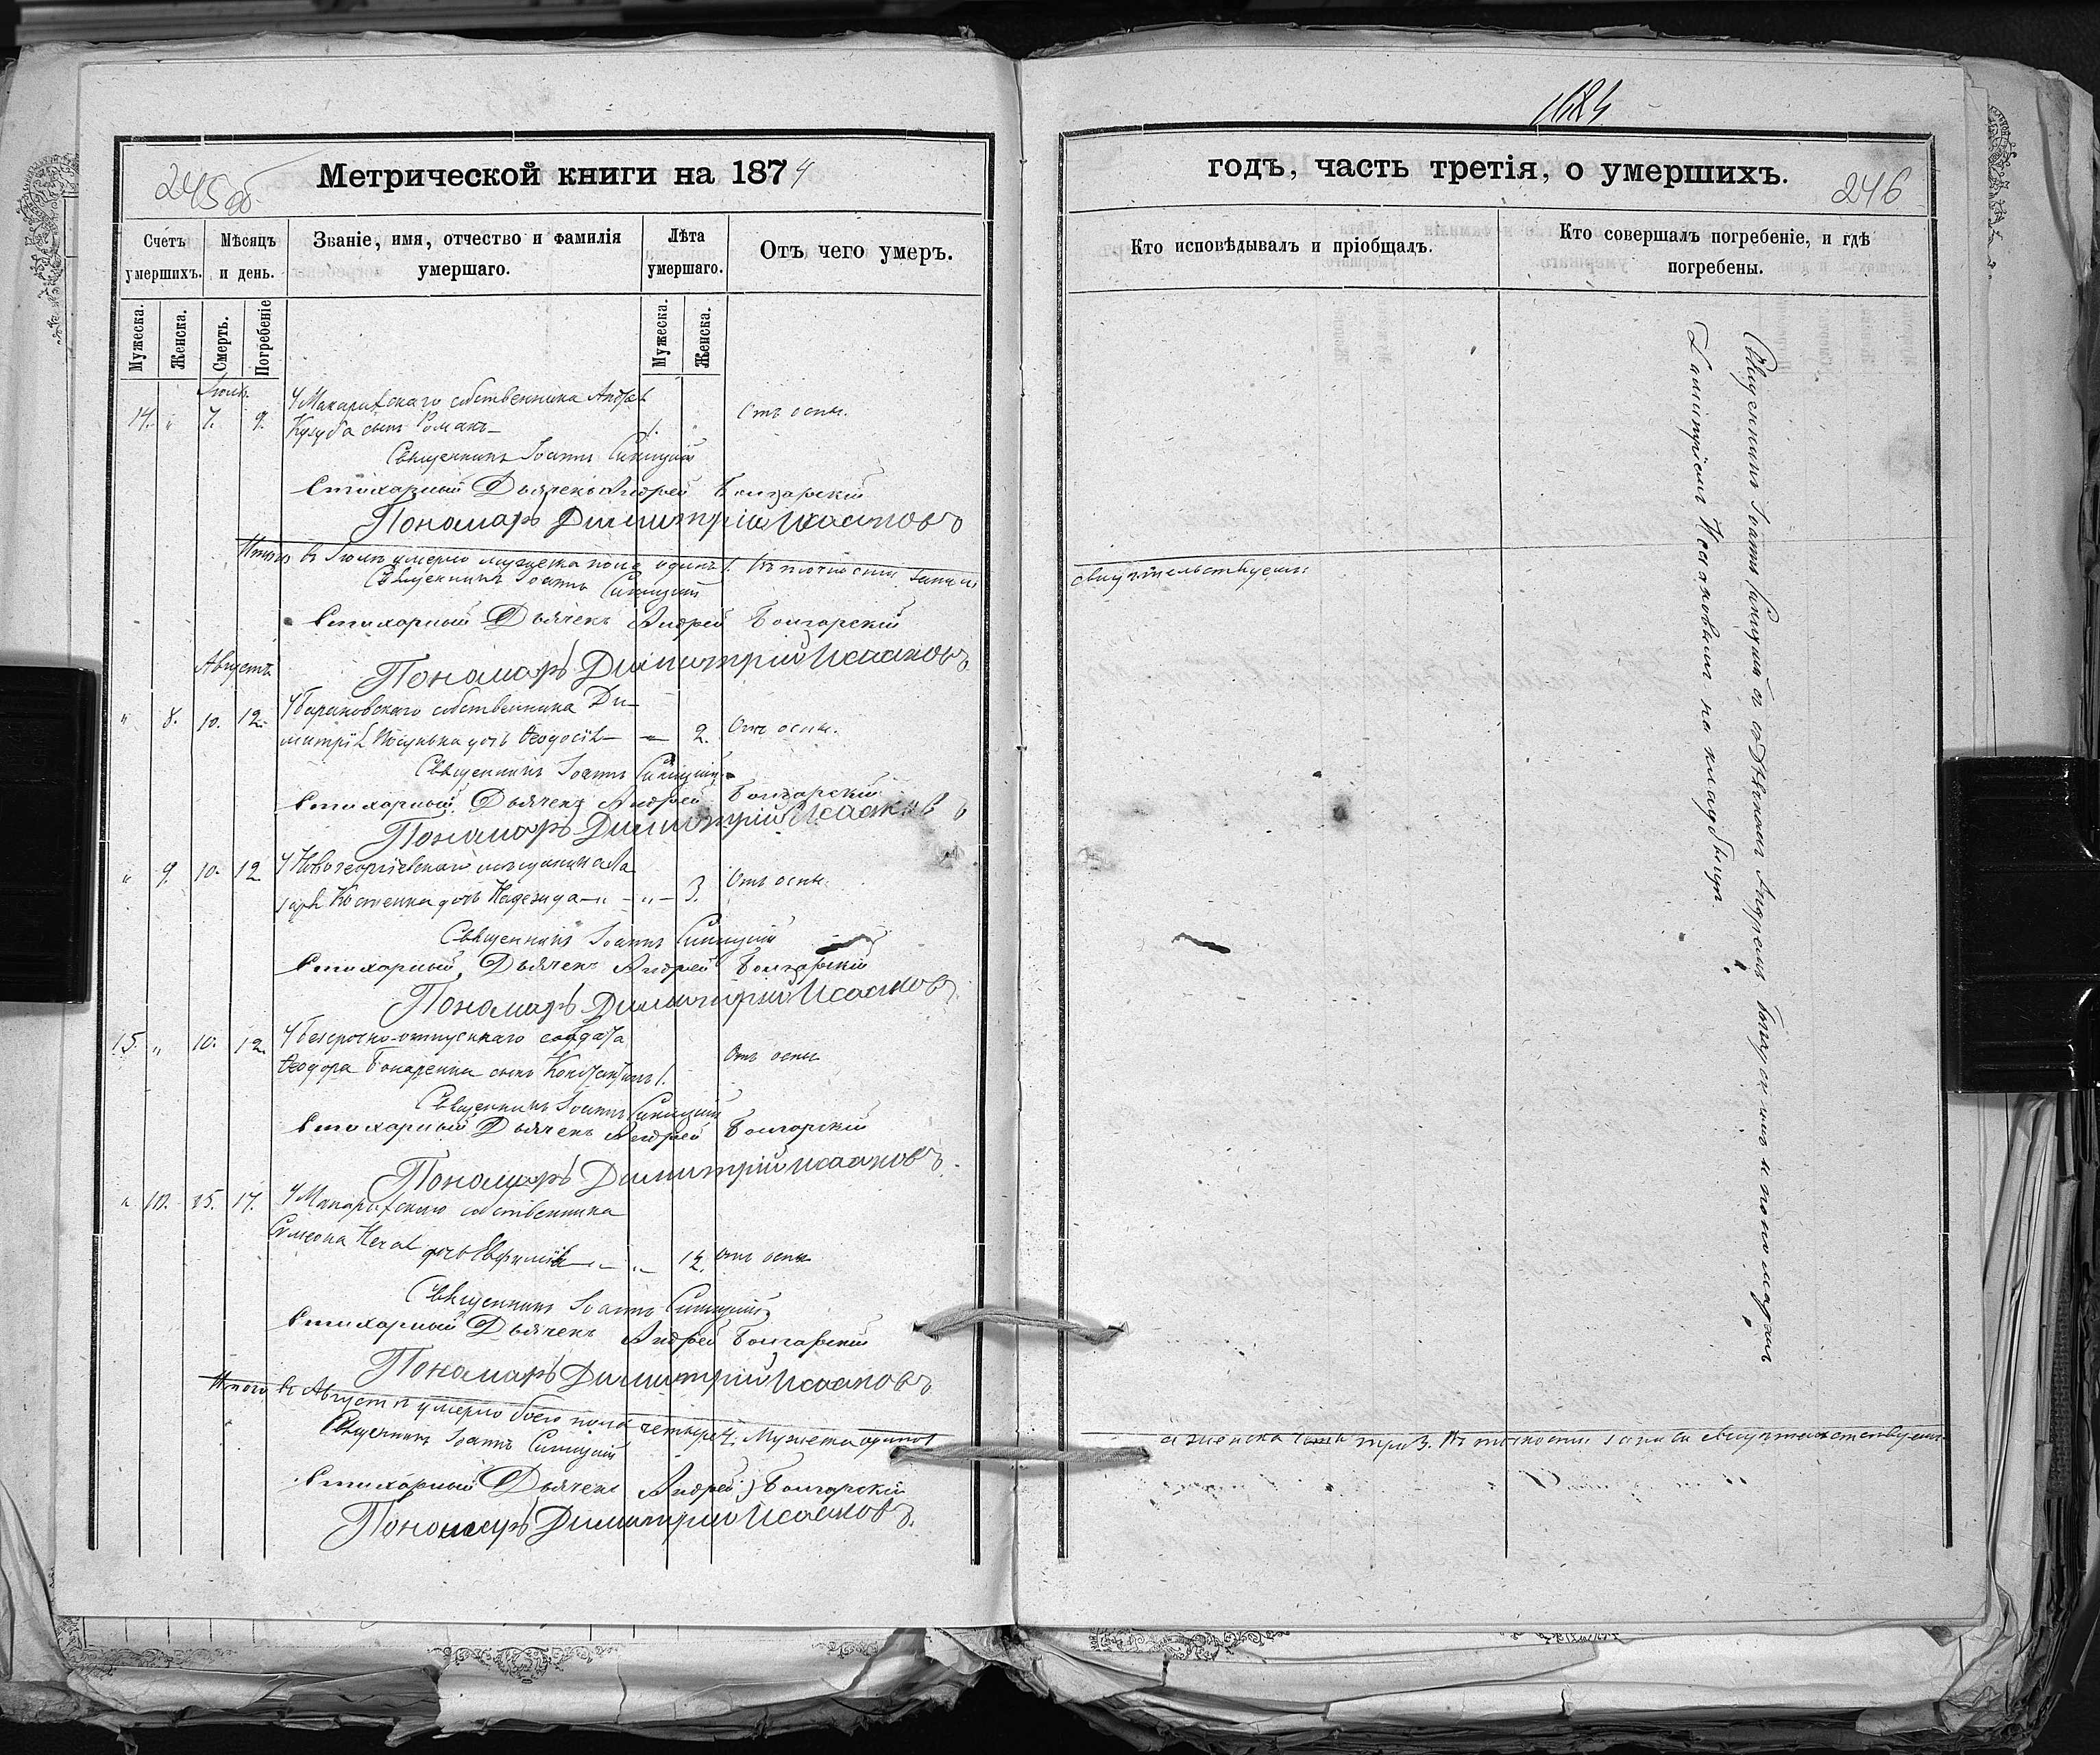 1684
245 об
Метрической книги на 1874
годъ, часть третія, о умершихъ.
246
Счетъ умершихъ.
Мѣсяцъ и день.
Званіе, имя, отчество и фамилія умершаго.
Лѣта умершаго.
Отъ чего умеръ.
Кто исповѣдывалъ и пріобщалъ.
Кто совершалъ погребеніе, и гдѣ погребены.
Мужеска.
Женска.
Смерть.
Погребеніе
Мужеска.
Женска.
Іюль
14. " 7. 9. У Макарихскаго собственника Андрея
Кузуба сынъ Романъ 1. " Отъ оспы.
Священникъ Іоаннъ Синицкій
Стихарный Дьячекъ Андрей Болгарскій
Пономарь Димитрій Исааковъ
Итого въ Іюлѣ умерло мужеска пола одинъ 1. Въ точности записи
свидѣтельствуемъ:
Священникъ Іоаннъ Синицкій
Стихарный Дьячекъ Андрей Болгарскій
Пономарь Димитрій Исааковъ
Августъ
" 8. 10. 12. У собственника Ди-
митрія дочь Ѳеодосія — " — 2. Отъ оспы.
Священникъ Іоаннъ Синицкій
Стихарный Дьячекъ Андрей Болгарскій
Пономарь Димитрій Исааковъ
" 9. 10. 12 У Новогеоргіевскаго мѣщанина Ла-
заря Костенка дочь Надежда — " — " — 3. Отъ оспы.
Священникъ Іоаннъ Синицкій
Стихарный Дьячекъ Андрей Болгарскій
Пономарь Димитрій Исааковъ
15. " 10. 12. У безсрочно-отпускнаго солдата
Ѳеодора сынъ Константинъ 1. Отъ оспы
Священникъ Іоаннъ Синицкій
Стихарный Дьячекъ Андрей Болгарскій
Пономарь Димитрій Исааковъ.
" 10. 15. 17. У Макарихскаго собственника
Симеона дочь Евфимія — " — 12. Отъ оспы
Священникъ Іоаннъ Синицкій
Стихарный Дьячекъ Андрей Болгарскій
Пономарь Димитрій Исааковъ
Итого въ Августѣ умерло обоего пола четыре 4. Мужеска одинъ 1
а женска три 3. Въ точности записи свидѣтельствуемъ
Священникъ Іоаннъ Синицкій
Стихарный Дьячекъ Андрей Болгарскій
Пономарь Димитрій Исааковъ.
Священникъ Іоаннъ Синицкій съ Дьячкомъ Андреемъ Болгарскимъ и пономаремъ
Димитріемъ Исааковымъ на кладбищѣ